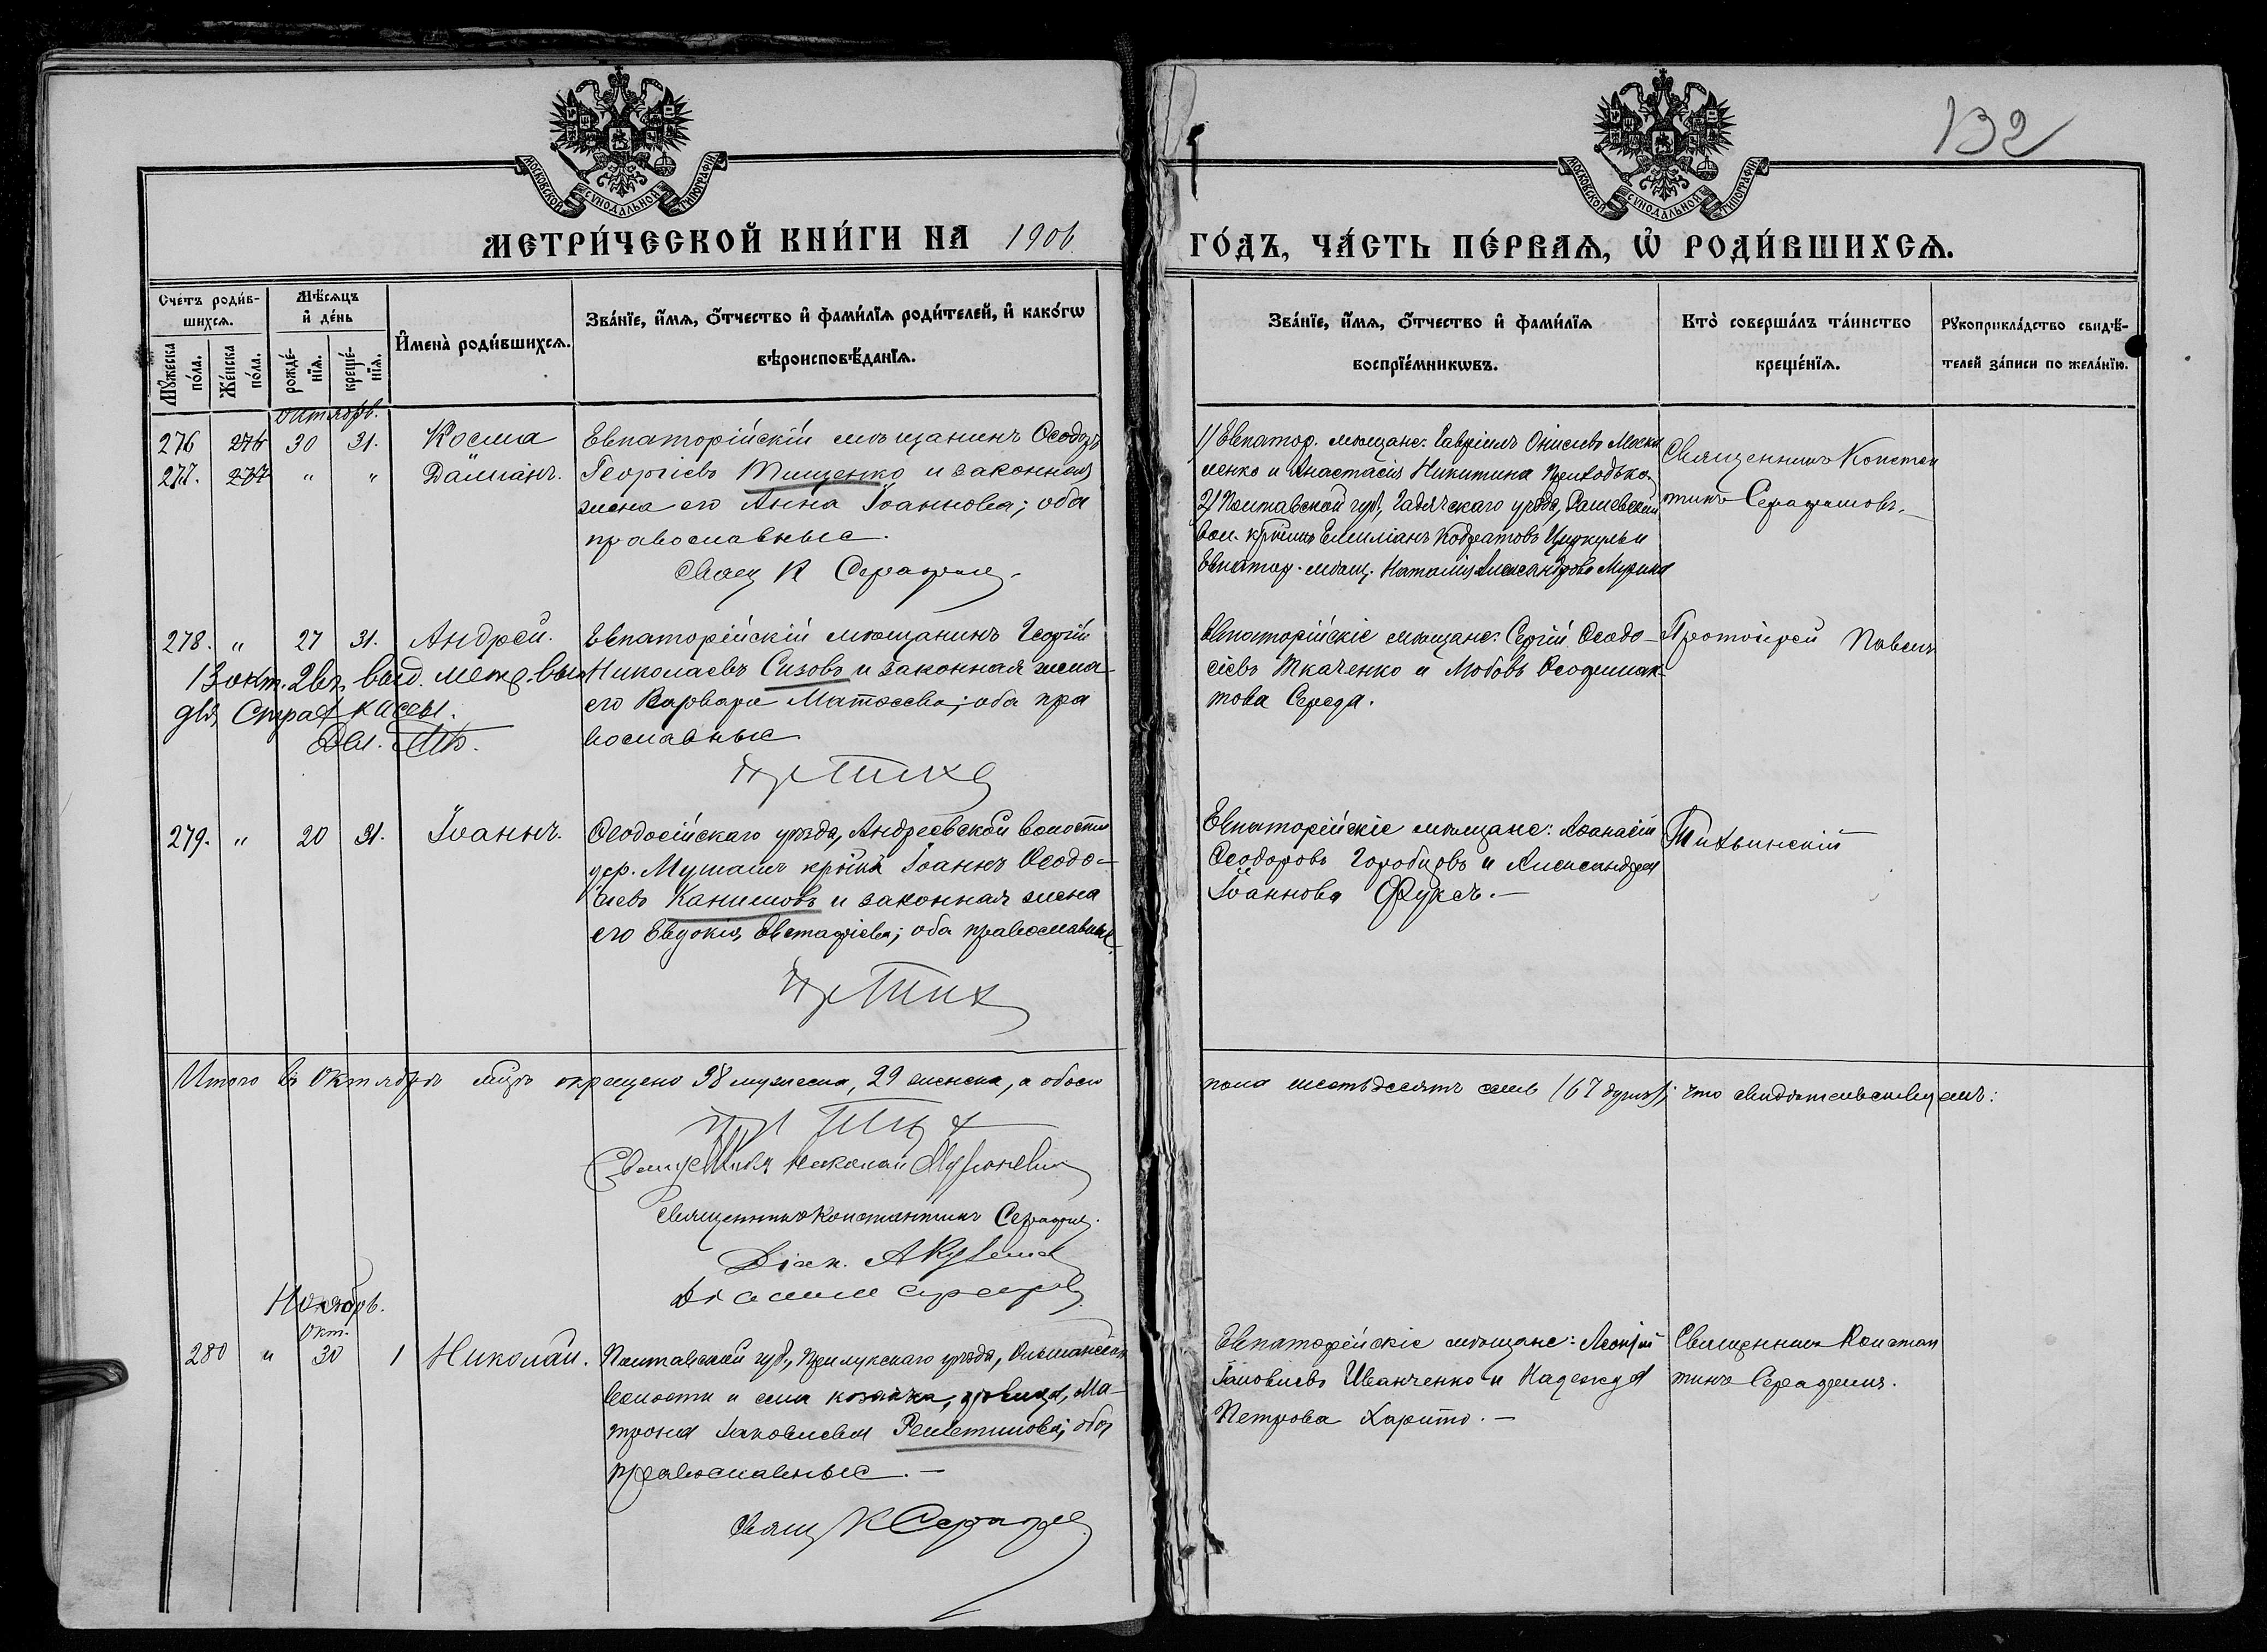 132
МОСКОВСКОЙ СѴНОДАЛЬНОЙ ТИПОГРАФІИ
МОСКОВСКОЙ СѴНОДАЛЬНОЙ ТИПОГРАФІИ
МЕТРИ́ЧЕСКОЙ КНИ́ГИ НА 1906
ГО́ДЪ, ЧА́СТЬ ПЕ́РВАѦ, Ѡ҆ РОДИ́ВШИХСѦ.
Сче́тъ роди́в-
шихсѧ.
Мѣ́сѧцъ
и҆ де́нь
И҆мена̀ роди́вшихсѧ.
Зва́нїе, и҆́мѧ, ѻ҆́тчество и҆ фами́лїѧ роди́телей, и҆ како́гѡ
вѣроисповѣ́данїѧ.
Мꙋ́жеска по́ла.
Же́нска по́ла.
рожде́-
нїѧ.
креще́-
нїѧ.
Зва́нїе, и҆́мѧ, ѻ҆́тчество и҆ фами́лїѧ
воспрїе́мникѡвъ.
Кто̀ соверша́лъ та́инство
креще́нїѧ.
Рꙋкоприкла́дство свидѣ́-
телей за́писи по жела́нїю.
Октябрь.
276 276 30 31. Косма Евпаторійскій мѣщанинъ Ѳеодоръ
277. 277 " " Даміанъ. Георгіевъ Тищенко и законная
жена его Анна Іоаннова; оба
православные.
Свящ К Серафим
1) Евпатор. мѣщане: Гавріилъ Онисіевъ Моски
ленко и Анастасія Никитина Приходько.
2) Полтавской губ., Гадячскаго уѣзда, Рашевской
вол. кр-нинъ Емиліанъ Кодратовъ Циркуль и
Евпатор. мѣщ. Наталія Александрова Мурина
Священникъ Констан
тинъ Серафимовъ.
278. " 27 31. Андрей. Евпаторійскій мѣщанинъ Георгій
Николаевъ Сизовъ и законная жена
его Варвара Матѳеева; оба пра
вославные
13 окт. выд. метр. вып
для Страх кассы.
Пр Тихв
Евпаторійскіе мѣщане: Сергій Ѳеодо-
сіевъ Ткаченко и Любовь Ѳеофилак-
това Середа.
Протоіерей Павелъ
279. " 20 31. Іоаннъ. Ѳеодосійскаго уѣзда, Андреевской волости
дер. Мушашъ кр-нинъ Іоаннъ Ѳеодо-
сіевъ Канишовъ и законная жена
его Евдокія Евстафіева; оба православные
Пр Тихв
Евпаторійскіе мѣщане: Аѳанасій
Ѳеодоровъ Горобцовъ и Александра
Іоаннова Фуксъ. —
Тихвинскій
Итого въ Октябрѣ мцѣ окрещено 38 мужеска, 29 женска, а обоего
пола шестьдесятъ семь (67 душъ), что свидѣтельствуемъ:
Пр Тихв
Священникъ Николай
Священникъ Константинъ Серафим.
Діак.
Ноябрь.
Окт.
280 " 30 1 Николай. Полтавской губ., Прилукскаго уѣзда, Ольшанской
волости и села козачка, дѣвица, Ма-
трона Іаковлева Решетилова; оба
православные. —
Свящ К Серафим
Евпаторійскіе мѣщане: Леонтій
Іаковлевъ Иванченко и Надежда
Петрова Харито. —
Священникъ Констан
тинъ Серафимъ.